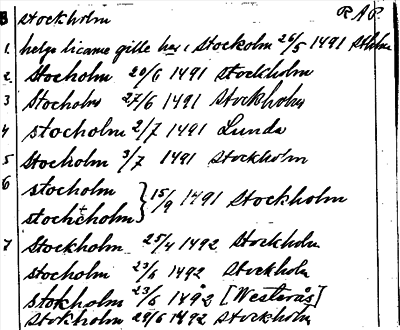 B stockholm R A P.
1. helga licame gille hws i Stockolm 26/5 1491 Sthlm
2. Stocholm 20/6 1491 Stockholm
3 Stocholm 27/6 1491 Stockholm
4 stocholm 2/7 1491 Lunda
5 Stocholm 3/7 1491 Stockholm
6 stocholm } 15/9 1491 Stockholm
stochcholm
7 Stockholm 25/4 1492 Stockholm
stocholm 23/6 1492 Stockholm
stokholm 23/6 1492 [Westerås]
Stokholm 29/6 1492 Stockholm